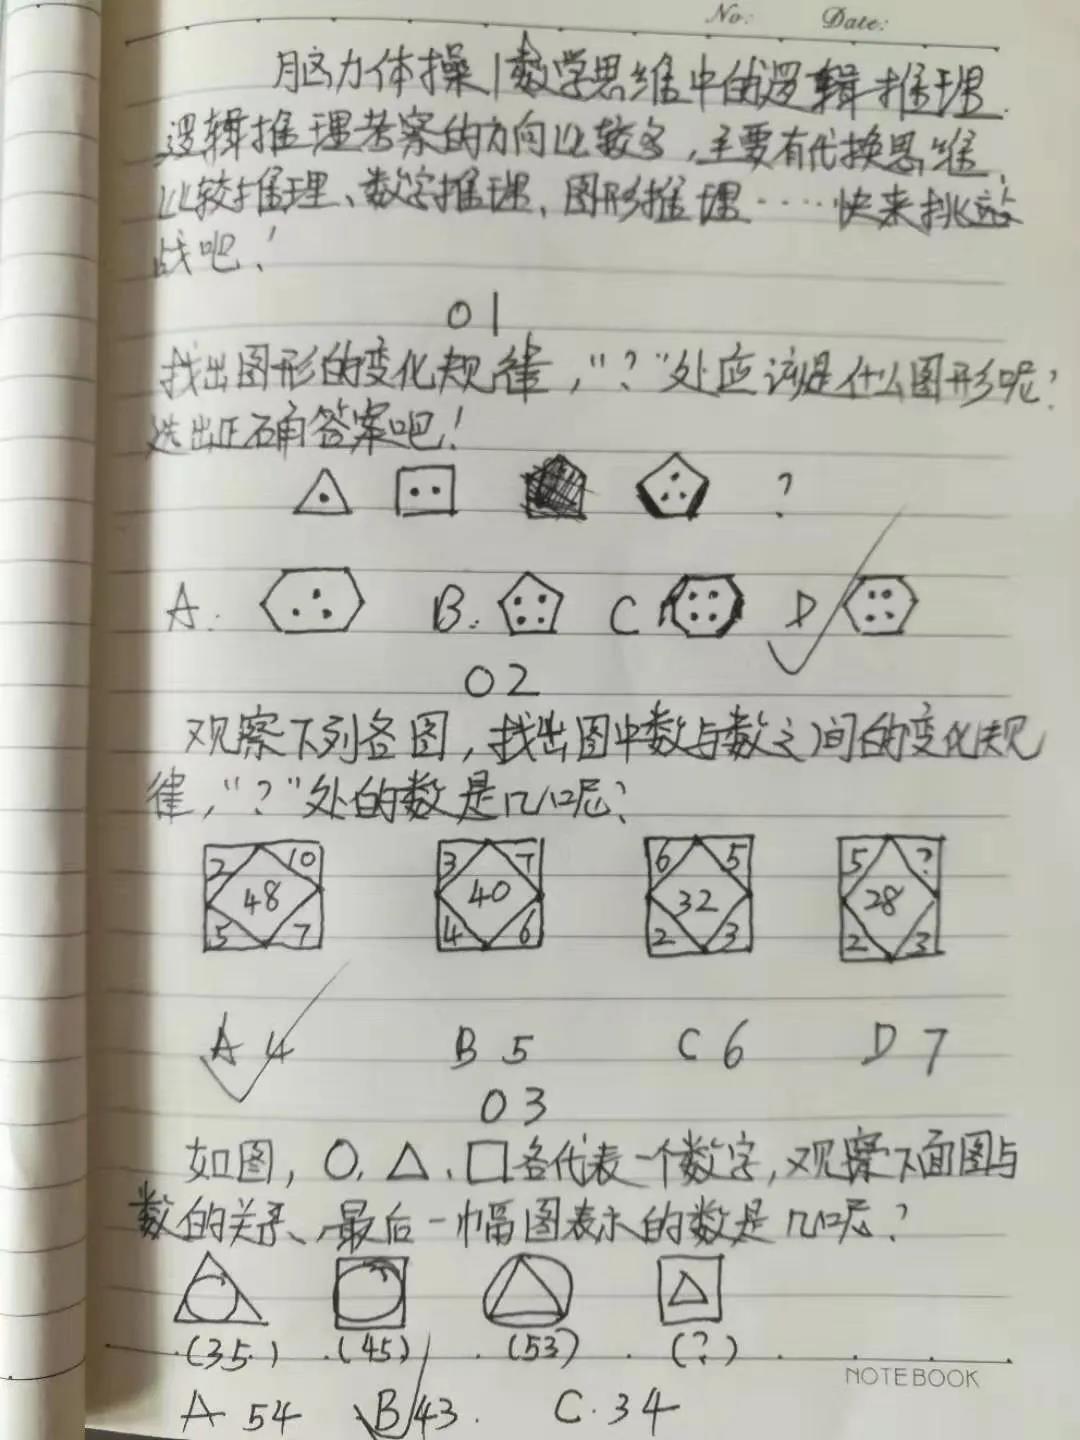 No: Date:
脑力体操|数学思维中的逻辑推理.
逻辑推理考察的方向比较多,主要有代换思维、
比较推理、数字推理、图形推理……快来挑
战吧!
01
找出图形的变化规律,"?"处应该是什么图形呢?
选出正确答案吧!
?
A. B. C D
02
观察下列各图,找出图中数与数之间的变化规
律,"?"处的数是几呢?
2 10 3 7 6 5 5 ?
48 40 32 28
5 7 4 6 2 3 2 3
A 4 B 5 C 6 D 7
03
如图,○、△、□各代表一个数字,观察下面图与
数的关系、最后一幅图表示的数是几呢?
(35) (45) (53) (?)
NOTEBOOK
A 54 B 43. C.34